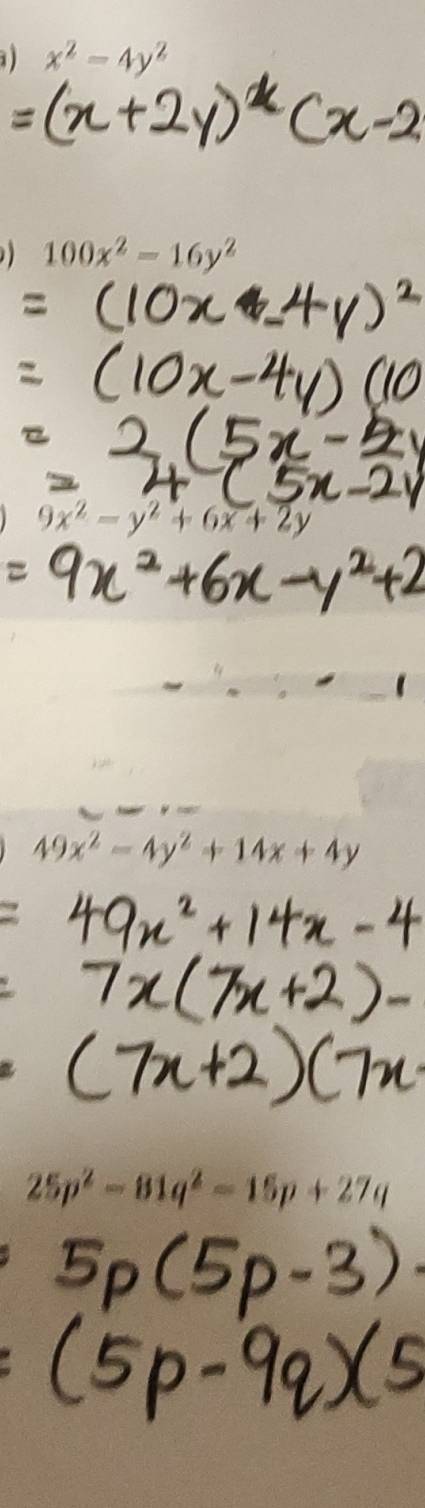 a) x² - 4y²
= (x+2y) (x-2
b) 100x² - 16y²
= (10x - 4y)²
= (10x-4y) (10
= 2 (5x -
= 4 (5x-2y
) 9x² - y² + 6x + 2y
= 9x²+6x-y²+2
) 49x² - 4y² + 14x + 4y
= 49x²+14x-4
= 7x(7x+2)-
= (7x+2)(7x-
25p² - 81q² - 15p + 27q
= 5p(5p-3)-
= (5p-9q)(5